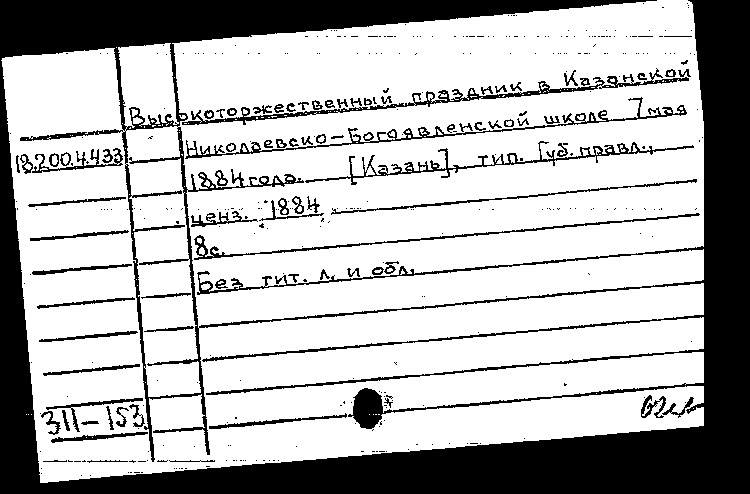 Высокоторжественный праздник в Казанской
18.200.4.433 Николаевско-Богоявленской школе 7 мая
1884 года. [Казань], тип. Губ. правл.,
ценз. 1884.
8с.
Без тит. л. и обл.
311-153